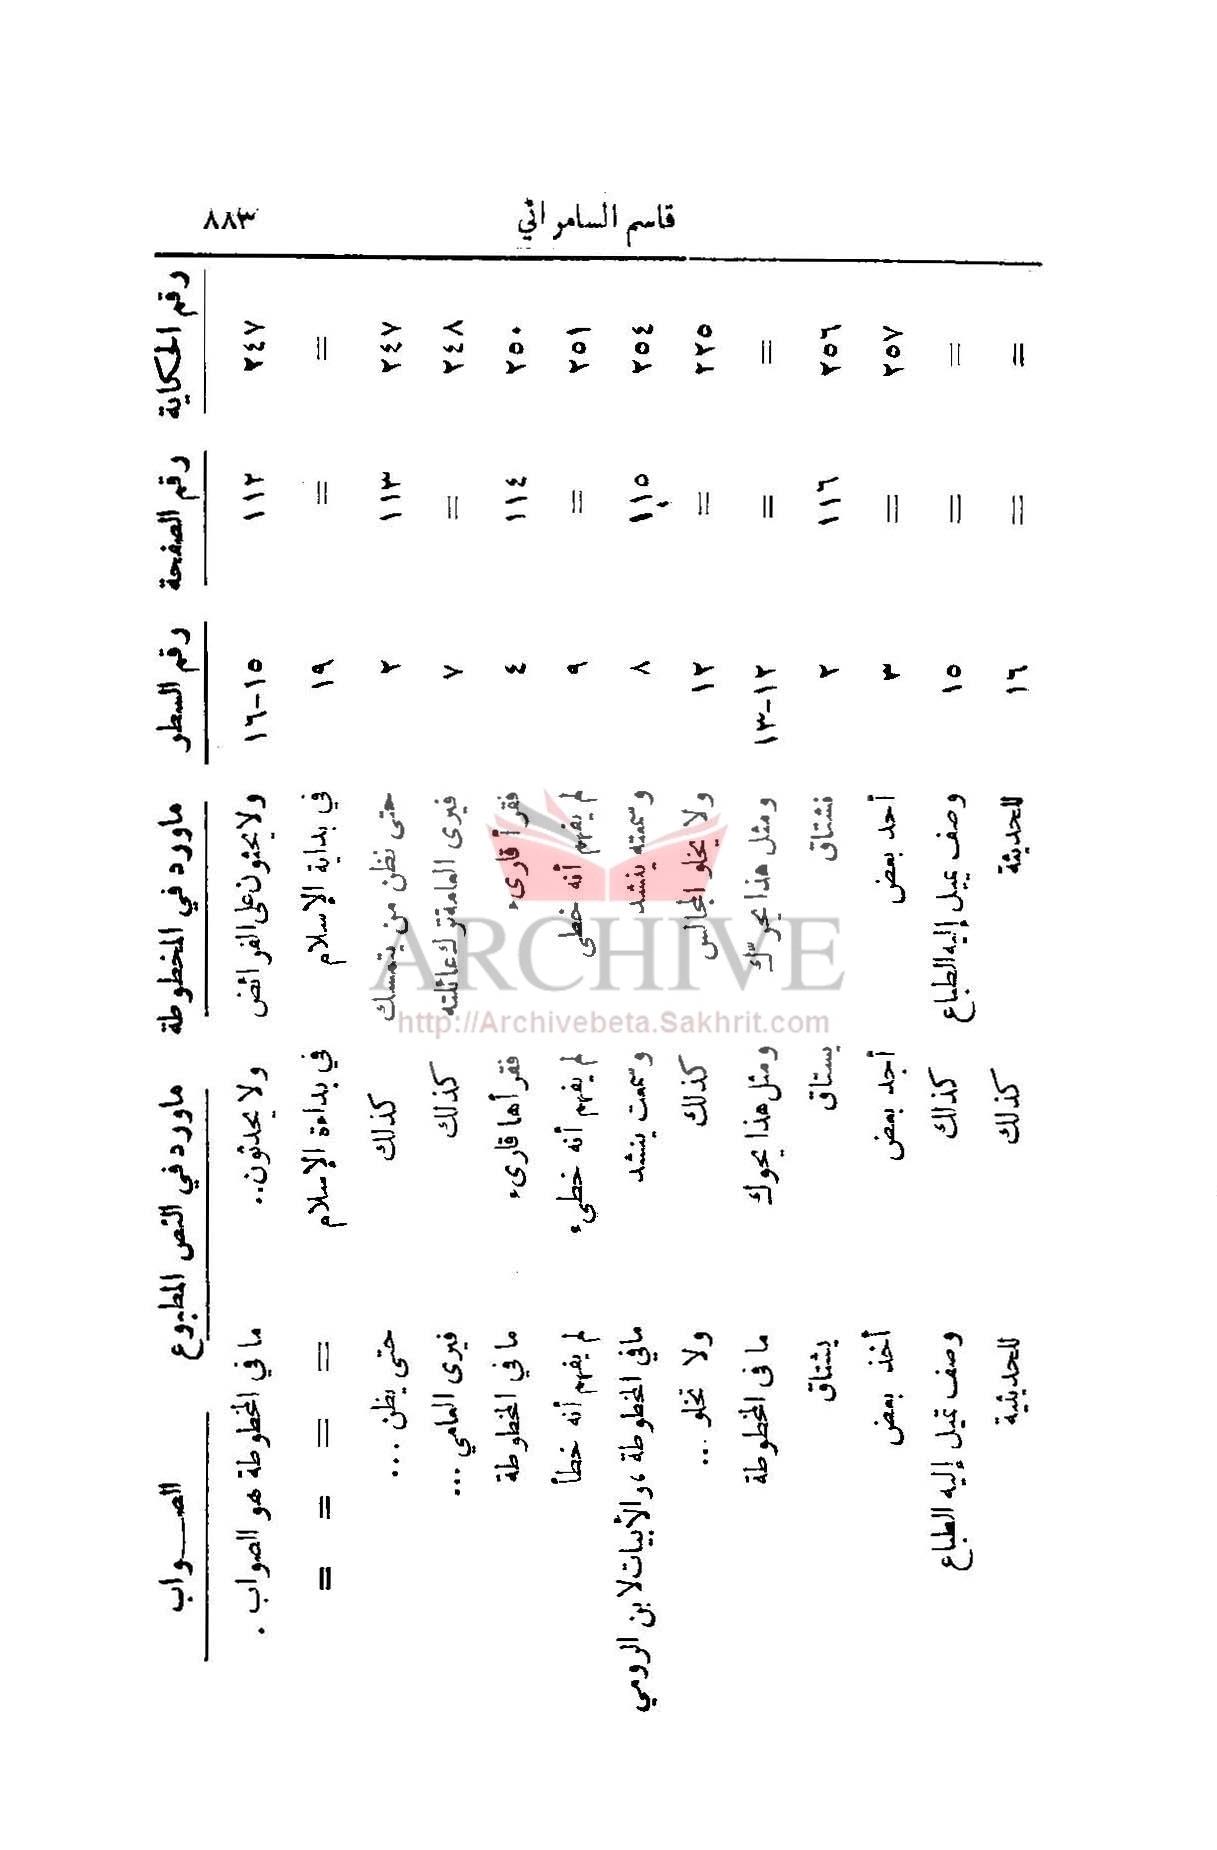 قاسم السامرائي ٨٨٣
رقم الحكاية رقم الصفحة رقم السطر ماورد في المخطوطة ماورد في النص المطبوع الصــواب
٢٤٧ ١١٢ ١٥-١٦ ولا يحثون على الفرائض ولا يحدثون.. ما في المخطوطة هو الصواب .
= = ١٩ في بداية الإسلام في بداءة الإسلام = = = =
٢٤٧ ١١٣ ٢ حتى نظن من يتمسك كذلك حتى يظن ...
٢٤٨ = ٧ فيرى العامة ترك عائلته كذلك فيرى العامي ...
٢٥٠ ١١٤ ٤ فقرأ قارىء فقرأها قارىء ما في المخطوطة
٢٥١ = ٩ لم يفهم أنه خطى لم يفهم أنه خطىء لم يفهم أنه خطأ
٢٥٤ ١١٥ ٨ وسمعته ينشد وسمعت ينشد مافي المخطوطة ، والأبيات لابن الرومي
٢٢٥ = ١٢ ولا يخلو المجالس كذلك ولا تخلو ...
= = ١٢-١٣ ومثل هذا يحرّك ومثل هذا يحوك ما فى المخطوطة
٢٥٦ ١١٦ ٢ نشتاق يستاق يشتاق
٢٥٧ = ٣ أحد بعض أجد بعض أخذ بعض
= = ١٥ وصف يميل إليه الطباع كذلك وصف تميل إليه الطباع
= = ١٦ للحديثة كذلك للحديثية
ARCHIVE
http://Archivebeta.Sakhrit.com